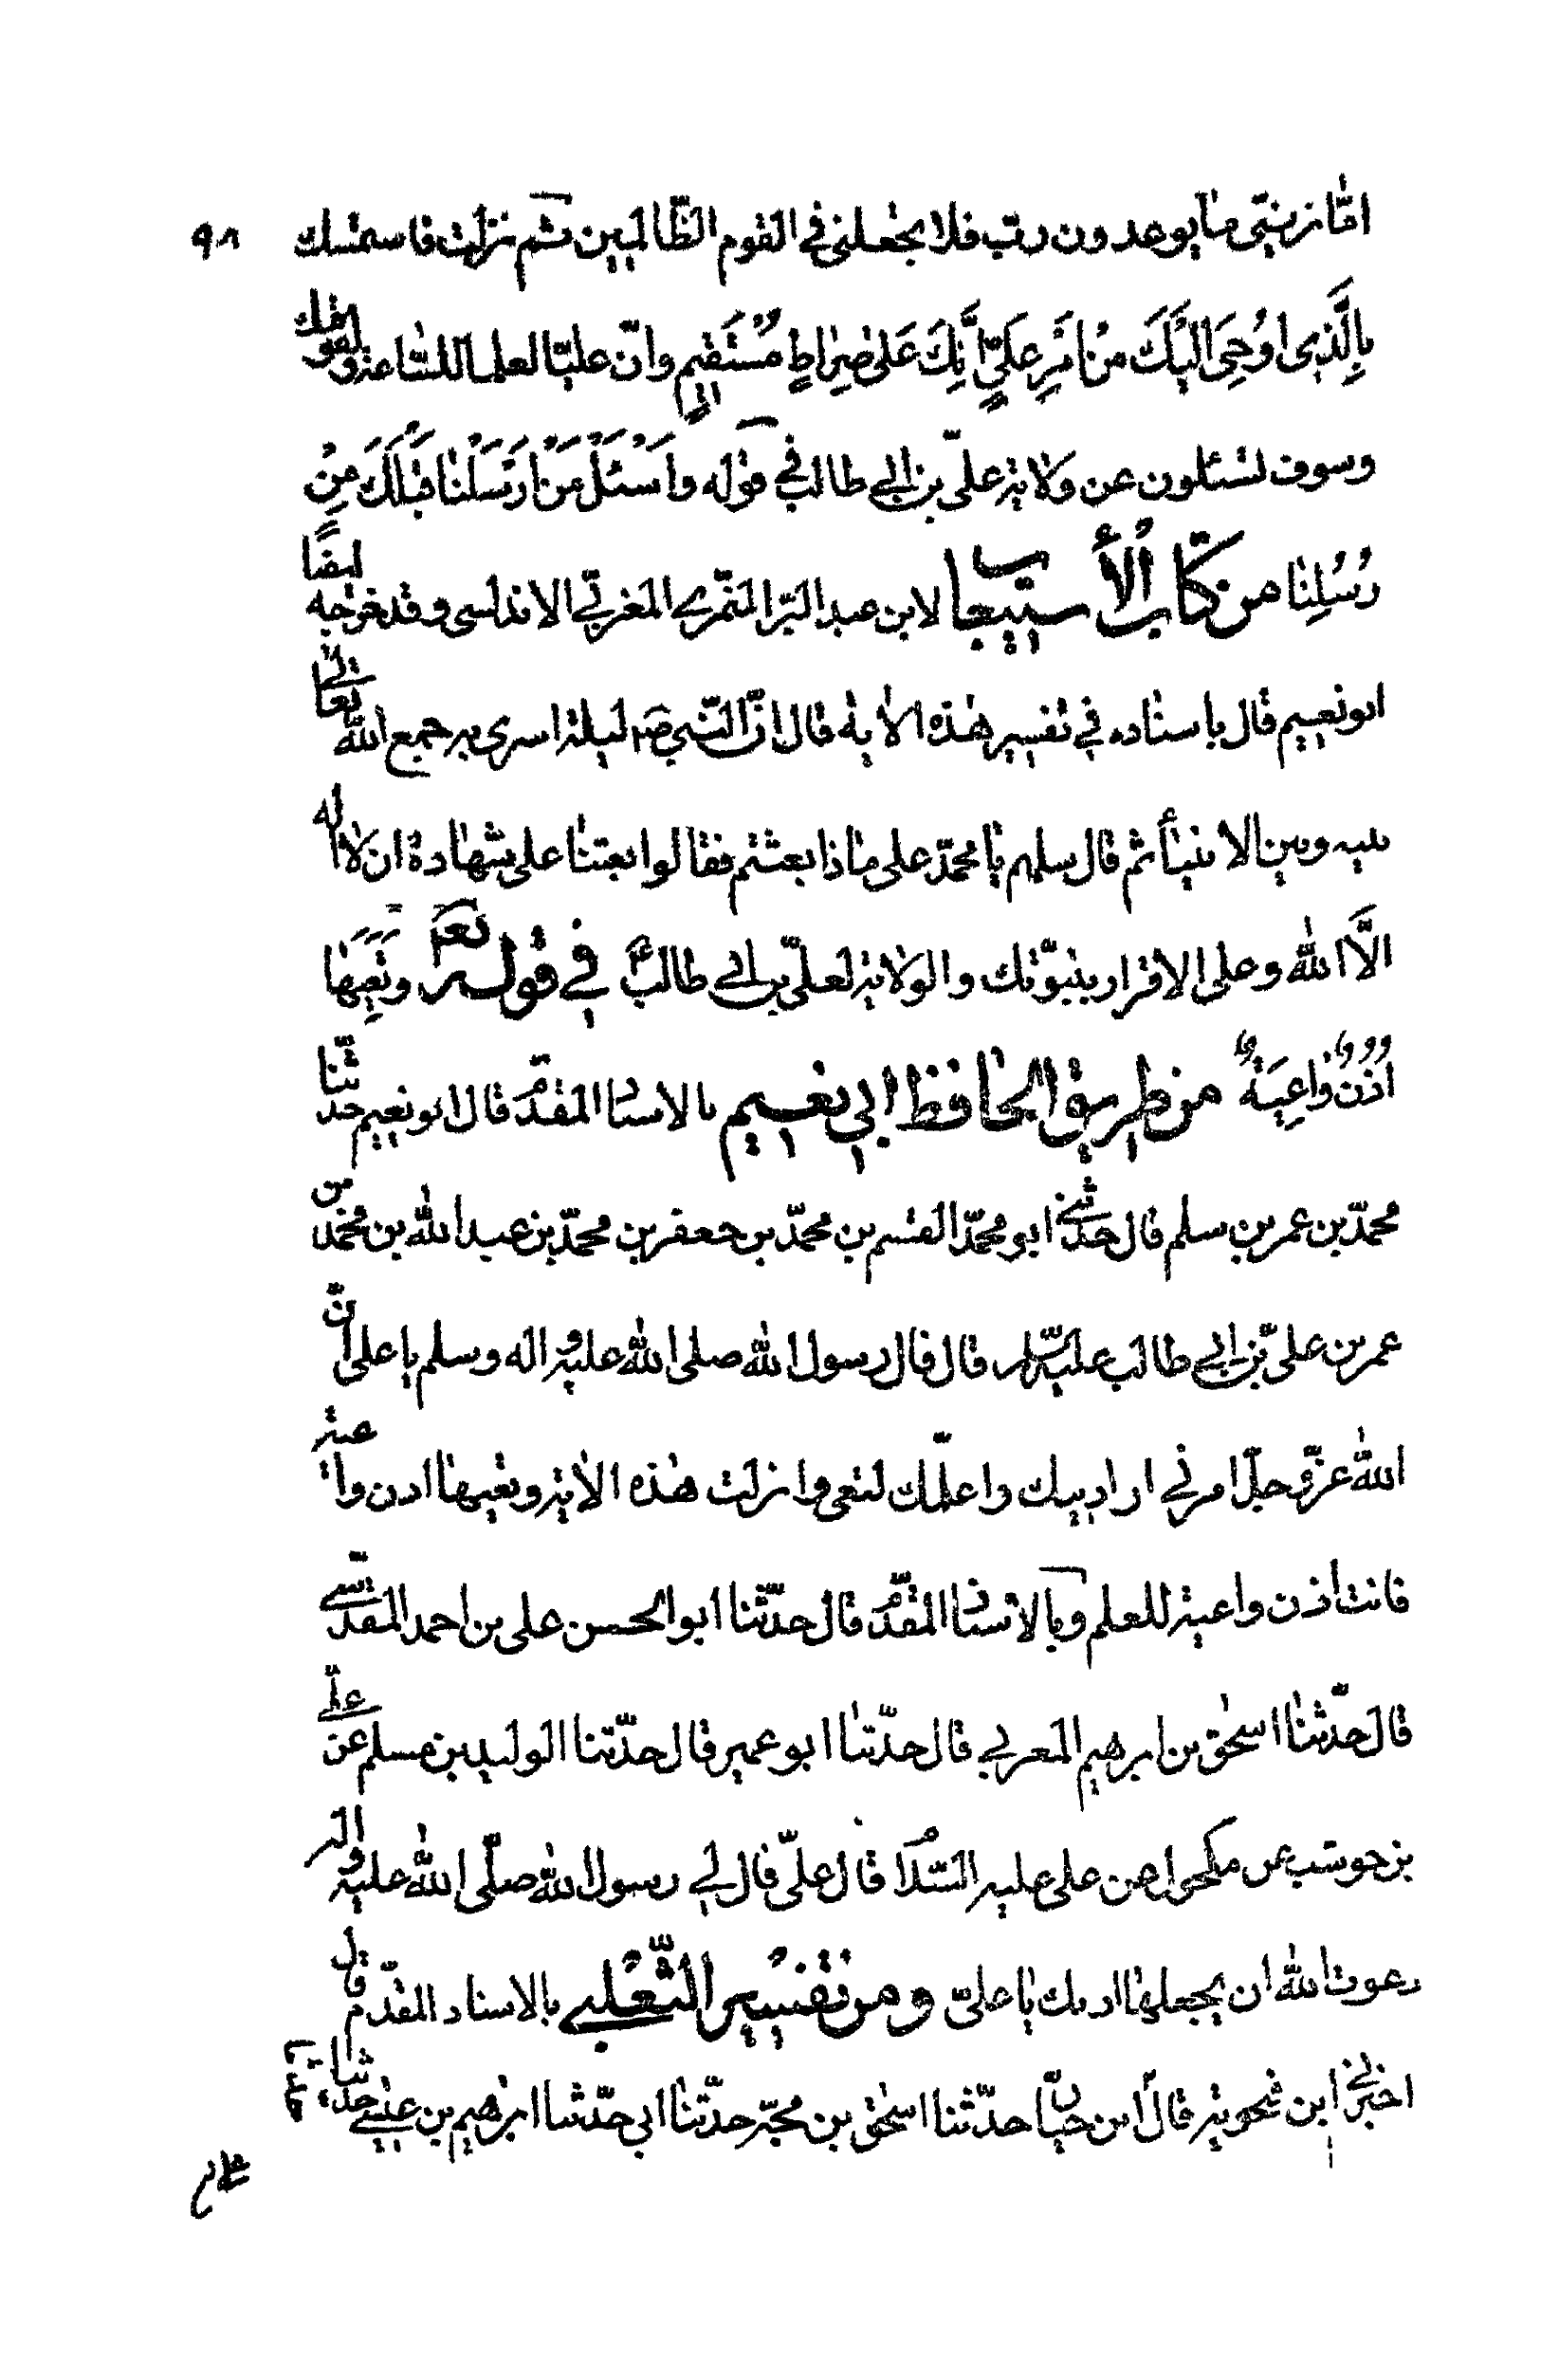 ٩٨
امّا ترينّي ما يوعدون ربّ فلا تجعلني في القوم الظّالمين ثم نزلت فاستمسك
بِالَّذي اُوحِيَ اِلَيْكَ مِنْ اَمْرِ عَلِيٍّ اِنَّكَ عَلىٰ صِراطٍ مُسْتَقيمٍ وانّ عليّا لعلم للسّاعة ولقومك
وسوف تسئلون عن ولاية عليّ بن ابي طالب في قوله وَاسْئَلْ مَنْ اَرْسَلْنا قَبْلَكَ مِنْ
رُسُلِنا من كتاب الأستيعاب لابن عبد البرّ النمري المغربي الاندلسي وقد خرّجه ايضًا
ابو نعيم قال باسناده في تفسير هذه الاية قال انّ النّبي ص ليلة اسري به جمع الله تعالى
بينه وبين الانبيأ ثم قال سلهم يا محمّد على ماذا بعثتم فقالوا بعثنا على شهادة ان لا اله
الّا الله وعلى الاقرار بنبوّتك والولاية لعليّ بن ابي طالب في قوله تع وَتَعِيَها
اُذُنٌ واعِيَةٌ من طريق الحافظ ابي نعيم بالاسنا المقدّم قال ابو نعيم حدّثنا
محمّد بن عمر بن سلم قال حدثني ابو محمّد القسم بن محمّد بن جعفر بن محمّد بن عبد الله بن محمّد بن
عمر بن عليّ بن ابي طالب عليه السلم قال قال رسول الله صلى الله عليه واله وسلم يا علي انّ
الله عزّ وجلّ امرني ان ادنيك واعلّمك لتعي وانزلت هذه الاية وتعيها اذن واعية
فانت اذن واعية للعلم وبالاسناد المقدّم قال حدّثنا ابو الحسن علي بن احمد المقدّسي
قال حدّثنا اسحٰق بن ابرهيم المعربي قال حدّثنا ابو عمير قال حدّثنا الوليد بن مسلم عن علي
بن حوشب عن مكحول عن علي عليه السّلام قال عليّ قال لي رسول الله صلّى الله عليه واله
دعوت الله ان يجعلها اذنك يا عليّ ومن تفسير الثّعلبي بالاسناد المقدّم قال
اخبرني ابن فنحويه قال ابن حبّان حدّثنا اسحٰق بن محمّد حدّثنا ابي حدّثنا ابرهيم بن عيسى حدّثنا